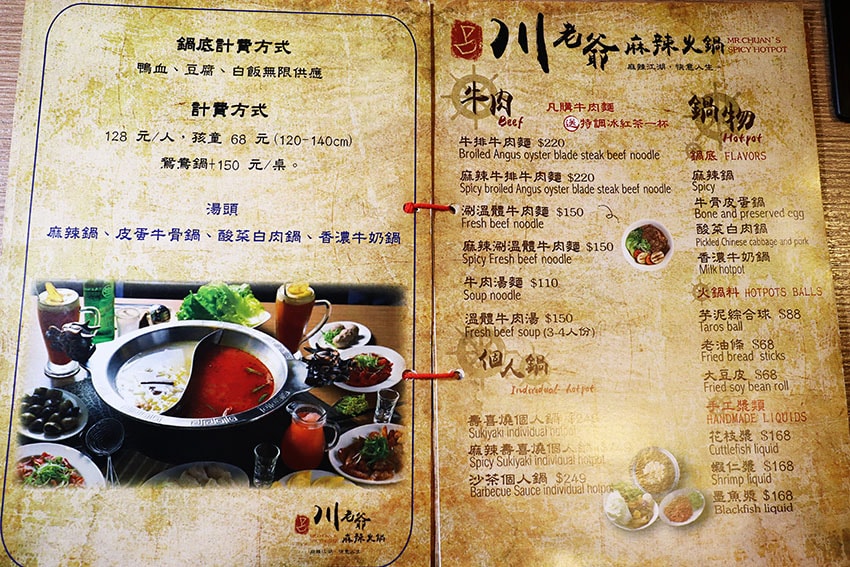 鍋底計費方式
鴨血、豆腐、白飯無限供應
計費方式
128 元/人，孩童 68 元 (120-140cm)
鴛鴦鍋+150 元/桌。
湯頭
麻辣鍋、皮蛋牛骨鍋、酸菜白肉鍋、香濃牛奶鍋
川老爺
麻辣火鍋
川老爺麻辣火鍋
MR.CHUAN'S
SPICY HOTPOT
麻辣江湖，快意人生。
牛肉
Beef
凡購牛肉麵
送特調冰紅茶一杯
牛排牛肉麵 $220
Broiled Angus oyster blade steak beef noodle
麻辣牛排牛肉麵 $220
Spicy broiled Angus oyster blade steak beef noodle
涮溫體牛肉麵 $150
Fresh beef noodle
麻辣涮溫體牛肉麵 $150
Spicy Fresh beef noodle
牛肉湯麵 $110
Soup noodle
溫體牛肉湯 $150
Fresh beef soup (3-4人份)
個人鍋
Individual hotpot
壽喜燒個人鍋
Sukiyaki individual hotpot
麻辣壽喜燒個人鍋
Spicy Sukiyaki individual hotpot
沙茶個人鍋 $249
Barbecue Sauce individual hotpot
鍋物
Hotpot
鍋底 FLAVORS
麻辣鍋
Spicy
牛骨皮蛋鍋
Bone and preserved egg
酸菜白肉鍋
Pickled Chinese cabbage and pork
香濃牛奶鍋
Milk hotpot
火鍋料 HOTPOTS BALLS
芋泥綜合球 $88
Taros ball
老油條 $68
Fried bread sticks
大豆皮 $68
Fried soy bean roll
手工漿類
HANDMADE LIQUIDS
花枝漿 $168
Cuttlefish liquid
蝦仁漿 $168
Shrimp liquid
墨魚漿 $168
Blackfish liquid